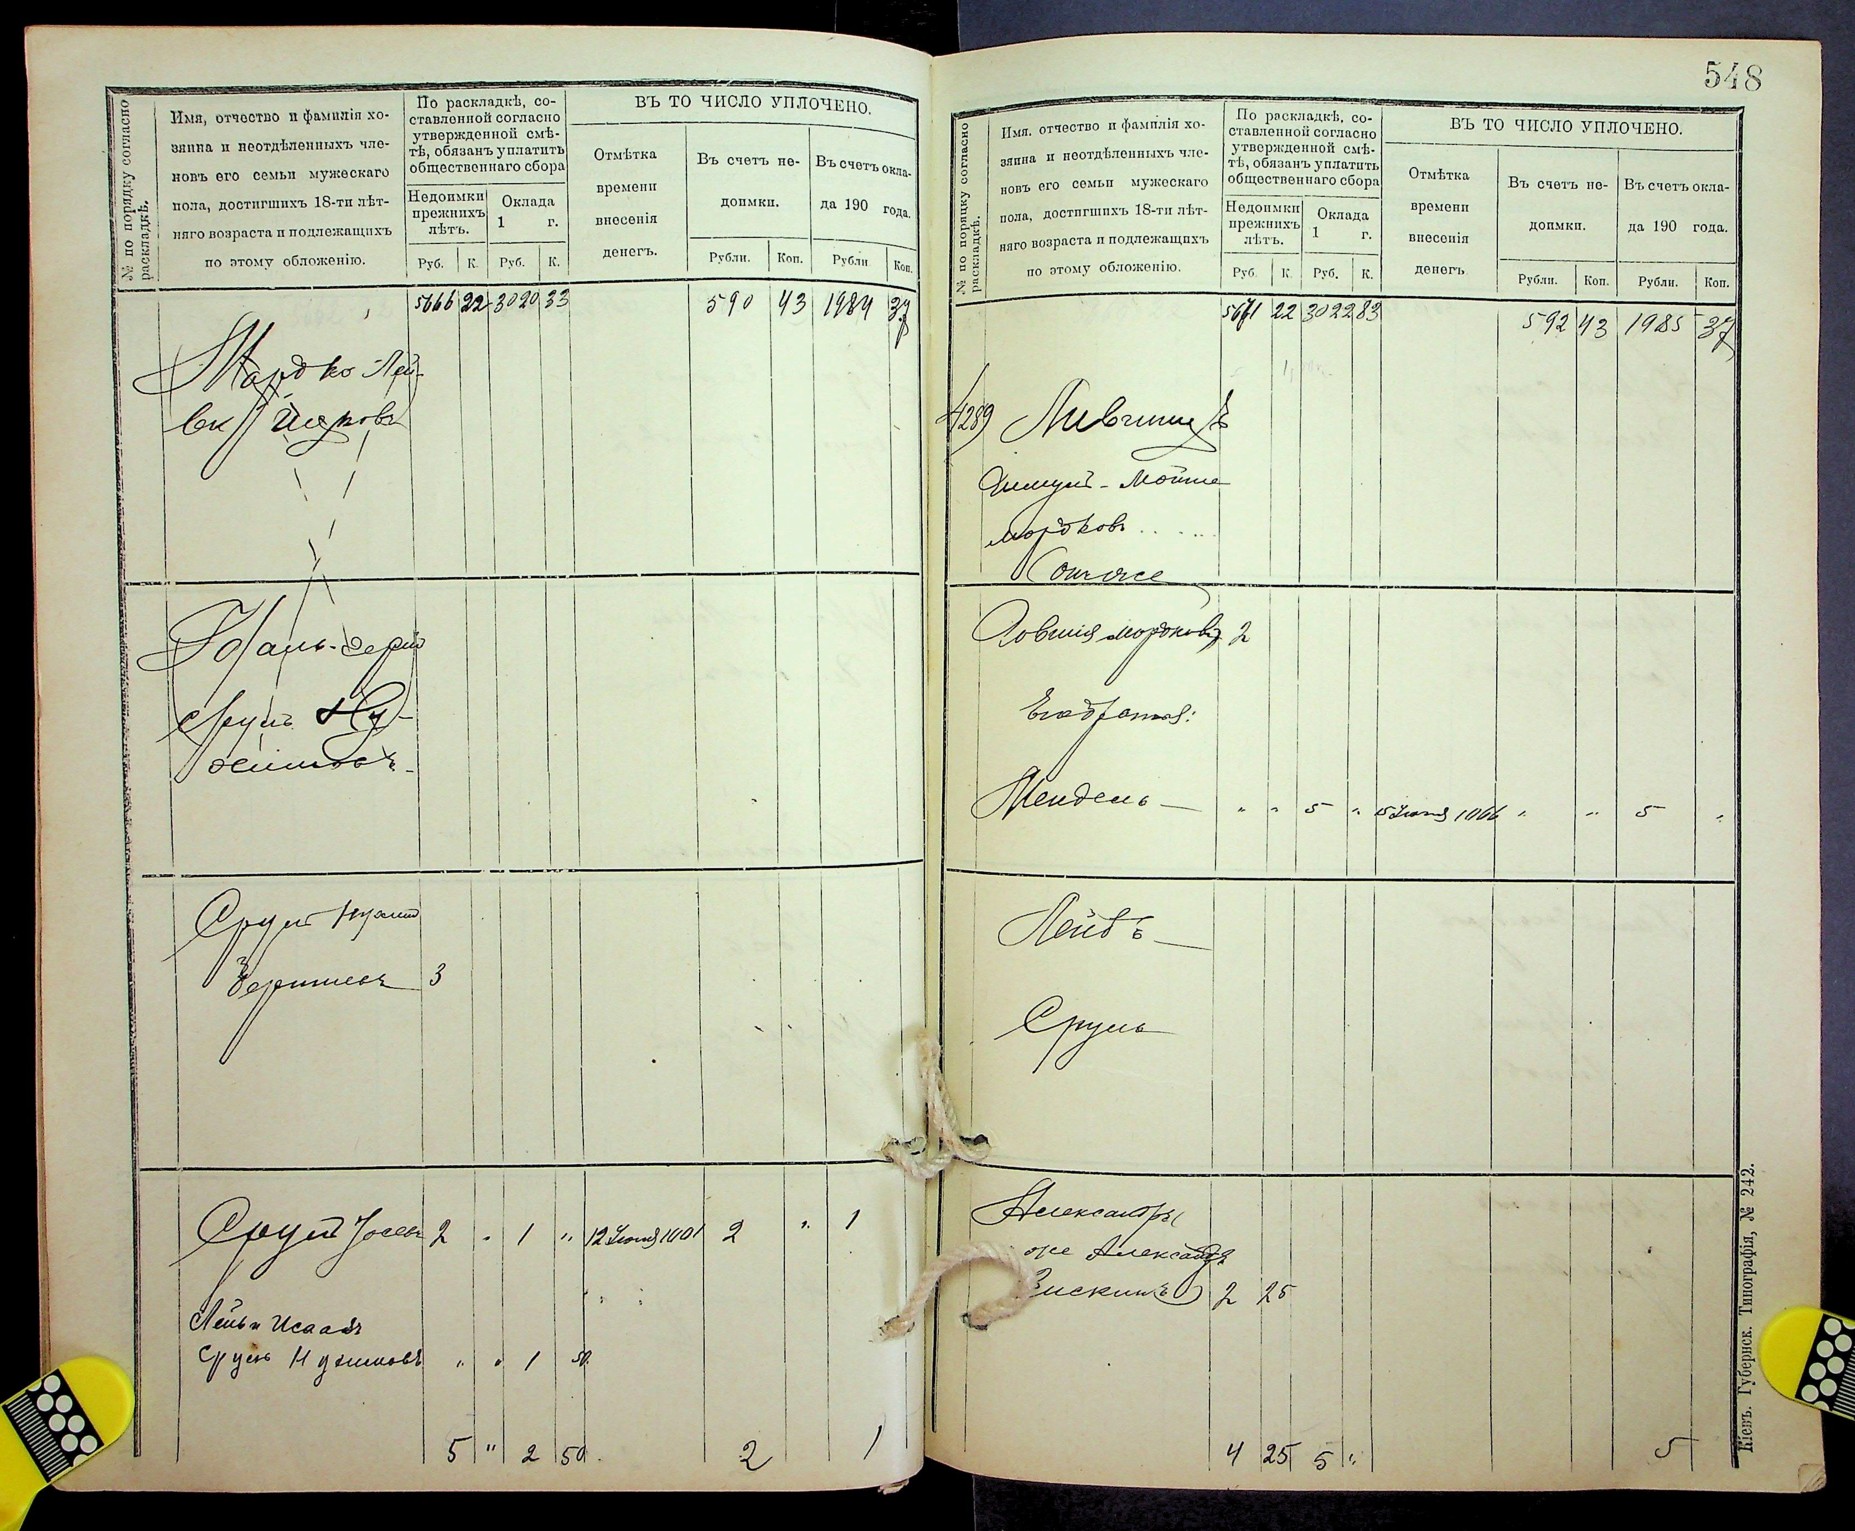 № по порядку согласно раскладкѣ.
Имя, отчество и фамилія хо-
зяина и неотдѣленныхъ чле-
новъ его семьи мужескаго
пола, достигшихъ 18-ти лѣт-
няго возраста и подлежащихъ
по этому обложенію.
По раскладкѣ, со-
ставленной согласно
утвержденной смѣ-
тѣ, обязанъ уплатить
общественнаго сбора
Недоимки
прежнихъ
лѣтъ.
Оклада
1 г.
Руб. К. Руб. К.
ВЪ ТО ЧИСЛО УПЛОЧЕНО.
Отмѣтка
времени
внесенія
денегъ.
Въ счетъ не-
доимки.
Въ счетъ окла-
да 190 года.
Рубли. Коп. Рубли Коп.
5666 22 3020 33 590 43 1984 37
Мордко Лей-
Сруль
Сруль
3
Сруль Іосевъ 2 " 1 " 12 Іюня 1901 2 " 1
Лейба Исаакъ
Сруль " " 1 50
5 " 2 50 2 1
548
№ по порядку согласно раскладкѣ.
Имя. отчество и фамилія хо-
зяина и неотдѣленныхъ чле-
новъ его семьи мужескаго
пола, достигшихъ 18-ти лѣт-
няго возраста и подлежащихъ
по этому обложенію.
По раскладкѣ, со-
ставленной согласно
утвержденной смѣ-
тѣ, обязанъ уплатить
общественнаго сбора
Недоимки
прежнихъ
лѣтъ.
Оклада
1 г.
Руб. К. Руб. К.
ВЪ ТО ЧИСЛО УПЛОЧЕНО.
Отмѣтка
времени
внесенія
денегъ
Въ счетъ не-
доимки.
Въ счетъ окла-
да 190 года.
Рубли. Коп. Рубли. Коп.
5671 22 3022 83 592 43 1985 37
4289 Лившицъ
Мойше
Мордковъ
Онъ же
Ровшія Мордковъ 2
Его братья:
Мендель — " " 5 " " " 5 "
Лейбъ —
Сруль
Александръ
Зискинъ 2 25
4 25 5 " 5
Кіевъ. Губернск. Типографія, № 242.